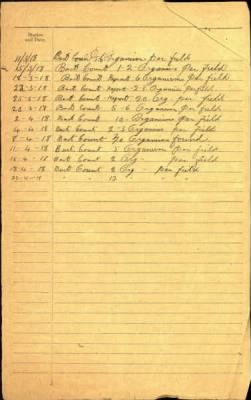 Station
and Date.
11/3/18 Bact Count 26 Organism per field
15/3/18 Bact Count 1-2 Organism per field
18-3-18 Bact Count Report 6 Organisms per field
22-3-18 Bact Count Report 2-5 Organism per field
25-3-18 Bact Count Report 20 Org per field
28-3-18 Bact Count 5-6 Organism per field
2-4-18 Bact Count 10 Organism per field
4-4-18 Bact Count 2-3 Organism per field
8-4-18 Bact Count No Organism found
11-4-18 Bact Count 3 Organism per field
15-4-18 Bact Count 2 Org per field
18-4-18 Bact Count 8 Org - per field
22-4-18 " " 12 "